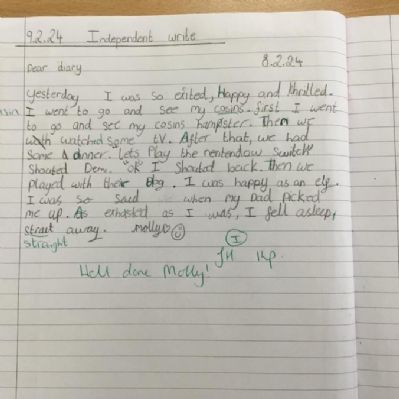 9.2.24 Independent write
8.2.24
Dear diary
Yesterday I was so exited, Happy and thrilled.
I went to go and see my cosins. first I went
to go and see my cosins hampster. Then we
watched some tV. After that, we had
some dinner. Lets Play the nentendow Switch
Shouted Demi. OK I Shouted back. then we
played with their dog. I was happy as an elf.
I was so Sad when my Dad picked
me up. As exhasted as I was, I fell asleep,
street away. Molly
straight
I
JH 1hp.
Well done Molly!